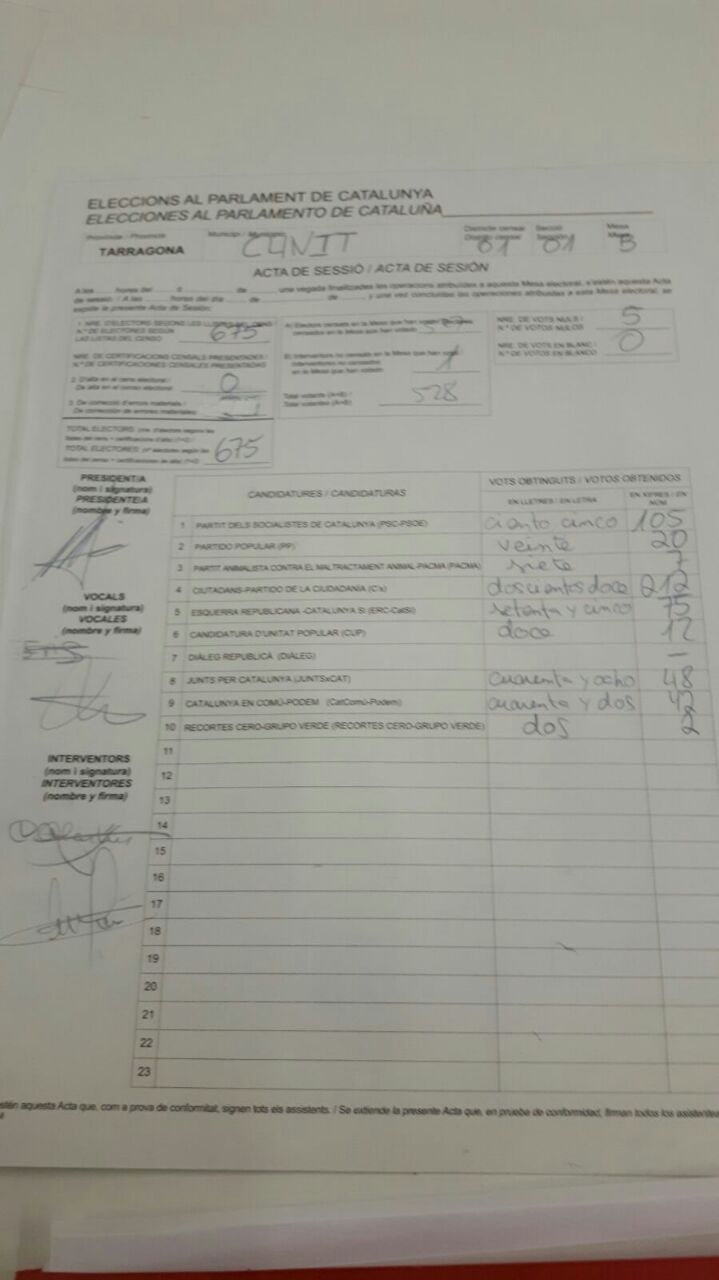 ELECCIONS AL PARLAMENT DE CATALUNYA
ELECCIONES AL PARLAMENTO DE CATALUÑA
Província / Provincia Municipi / Municipio Districte censal Secció Mesa
Distrito censal Sección Mesa
TARRAGONA CUNIT 01 01 B
ACTA DE SESSIÓ / ACTA DE SESIÓN
A les hores del de una vegada finalitzades les operacions atribuïdes a aquesta Mesa electoral, s'estén aquesta Acta
de sessió / A las horas del día de de y una vez concluidas las operaciones atribuidas a esta Mesa electoral, se
expide la presente Acta de Sesión:
1. NRE. D'ELECTORS SEGONS LES
N.º DE ELECTORES SEGÚN
LAS LISTAS DEL CENSO
675
NRE. DE CERTIFICACIONS CENSALS PRESENTADES
N.º DE CERTIFICACIONES CENSALES PRESENTADAS
2. D'alta en el cens electoral
De alta en el censo electoral
0
3. De correcció d'errors materials
De corrección de errores materiales
TOTAL ELECTORS
TOTAL ELECTORES
675
A) Electors censats en la Mesa que han votat
B) Interventors no censats en la Mesa que han votat
Interventores no censados
en la Mesa que han votado
1
Total votants (A+B) /
Total votantes (A+B)
528
NRE. DE VOTS NULS /
N.º DE VOTOS NULOS
5
NRE. DE VOTS EN BLANC /
N.º DE VOTOS EN BLANCO
0
PRESIDENT/A
(nom i signatura)
PRESIDENTE/A
(nombre y firma)
VOCALS
(nom i signatura)
VOCALES
(nombre y firma)
INTERVENTORS
(nom i signatura)
INTERVENTORES
(nombre y firma)
CANDIDATURES / CANDIDATURAS VOTS OBTINGUTS / VOTOS OBTENIDOS
EN LLETRES / EN LETRA EN XIFRES / EN NÚM
1 PARTIT DELS SOCIALISTES DE CATALUNYA (PSC-PSOE) ciento cinco 105
2 PARTIDO POPULAR (PP) veinte 20
3 PARTIT ANIMALISTA CONTRA EL MALTRACTAMENT ANIMAL-PACMA (PACMA) siete 7
4 CIUTADANS-PARTIDO DE LA CIUDADANÍA (C's) doscientos doce 212
5 ESQUERRA REPUBLICANA -CATALUNYA SÍ (ERC-CatSí) setenta y cinco 75
6 CANDIDATURA D'UNITAT POPULAR (CUP) doce 12
7 DIÀLEG REPUBLICÀ (DIÀLEG) —
8 JUNTS PER CATALUNYA (JUNTSxCAT) cuarenta y ocho 48
9 CATALUNYA EN COMÚ-PODEM (CatComú-Podem) cuarenta y dos 42
10 RECORTES CERO-GRUPO VERDE (RECORTES CERO-GRUPO VERDE) dos 2
11
12
13
14
15
16
17
18
19
20
21
22
23
estén aquesta Acta que, com a prova de conformitat, signen tots els assistents. / Se extiende la presente Acta que, en prueba de conformidad, firman todos los asistentes